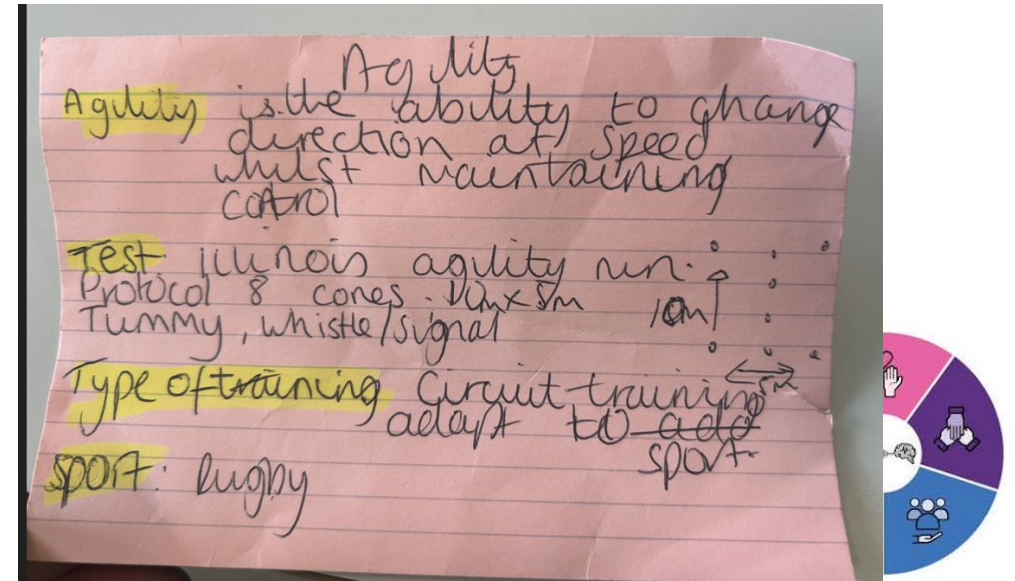 Agility
Agility is the ability to change
direction at speed
whilst maintaining
control
Test Illinois agility run.
Protocol 8 cones. 10m x 5m
10m
Tummy, whistle/signal
5m
Type of training Circuit training
adapt to add
sport.
Sport: Rugby